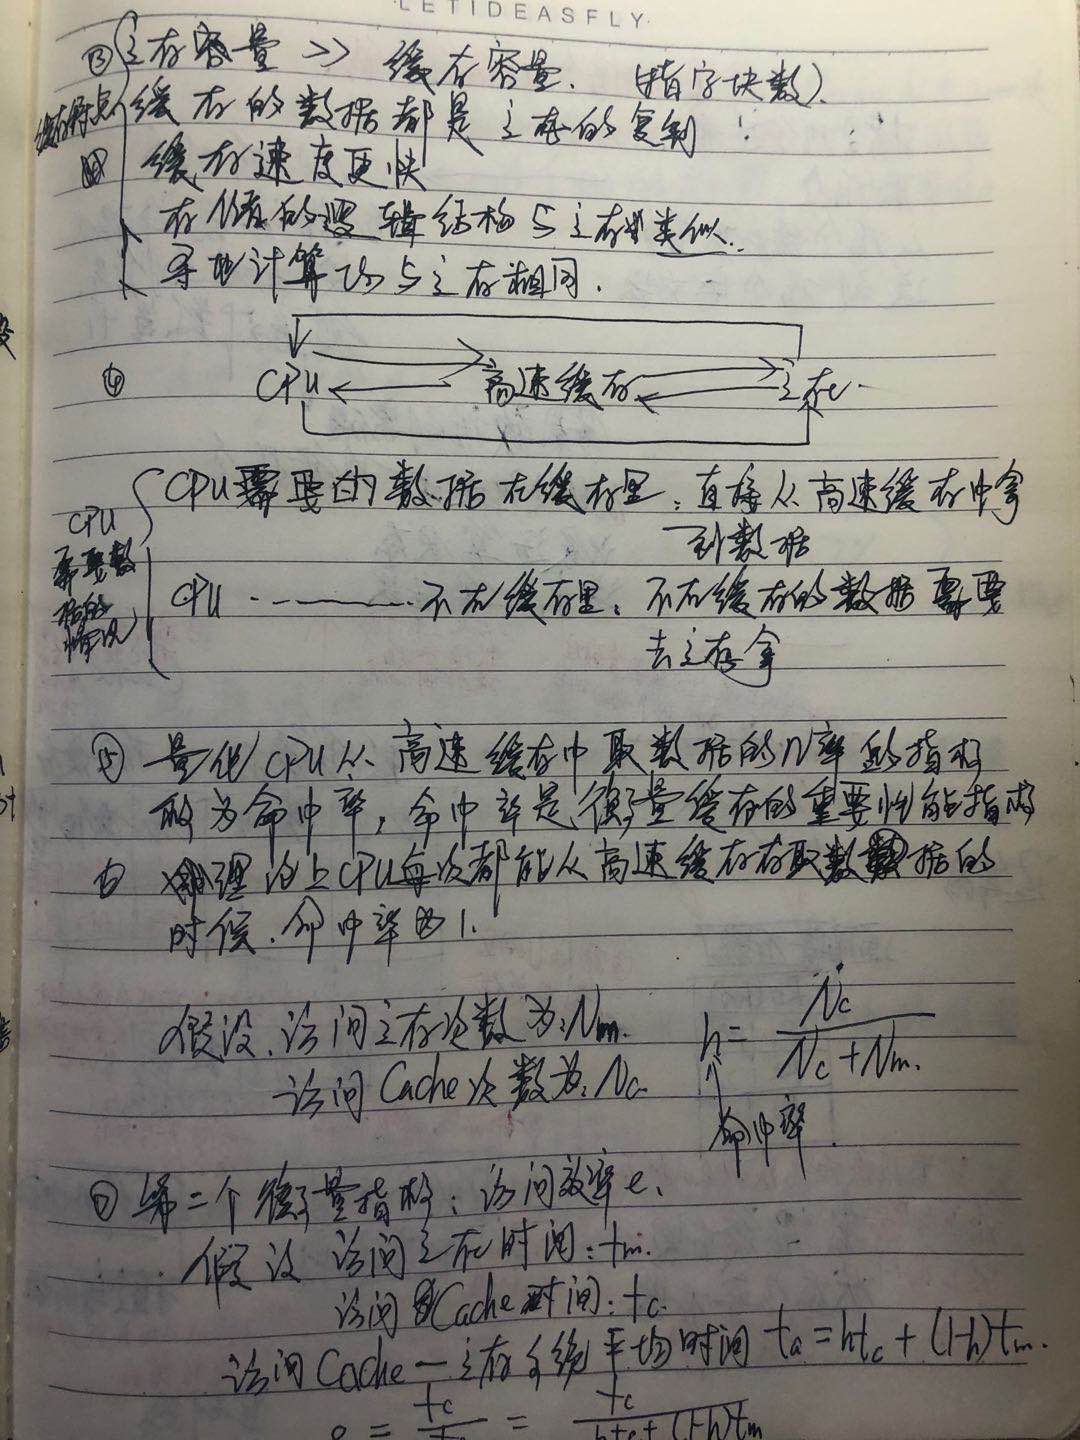 LETIDEASFLY
③ 主存容量 >> 缓存容量. (指字块数).
缓存特点
缓存的数据都是主存的复制
缓存速度更快
存储的逻辑结构与主存类似.
寻址计算 与主存相同.
④ CPU 高速缓存 主存
CPU需要数据的情况
CPU需要的数据在缓存里:直接从高速缓存中拿
到数据
CPU ------- 不在缓存里:不在缓存的数据需要
去主存拿
⑤ 量化CPU从高速缓存中取数据的效率的指标
成为命中率,命中率是衡量缓存的重要性能指标
⑥ 理论上CPU每次都能从高速缓存存取数据的
时候.命中率为1.
假设.访问主存次数为:Nm.
访问Cache次数为:Nc
h = Nc / (Nc + Nm.)
命中率.
⑦ 第二个衡量指标:访问效率e.
假设 访问主存时间:tm.
访问Cache时间:tc.
访问Cache—主存系统平均时间 ta = htc + (1-h)tm.
e = tc / = tc / htc + (1-h)tm